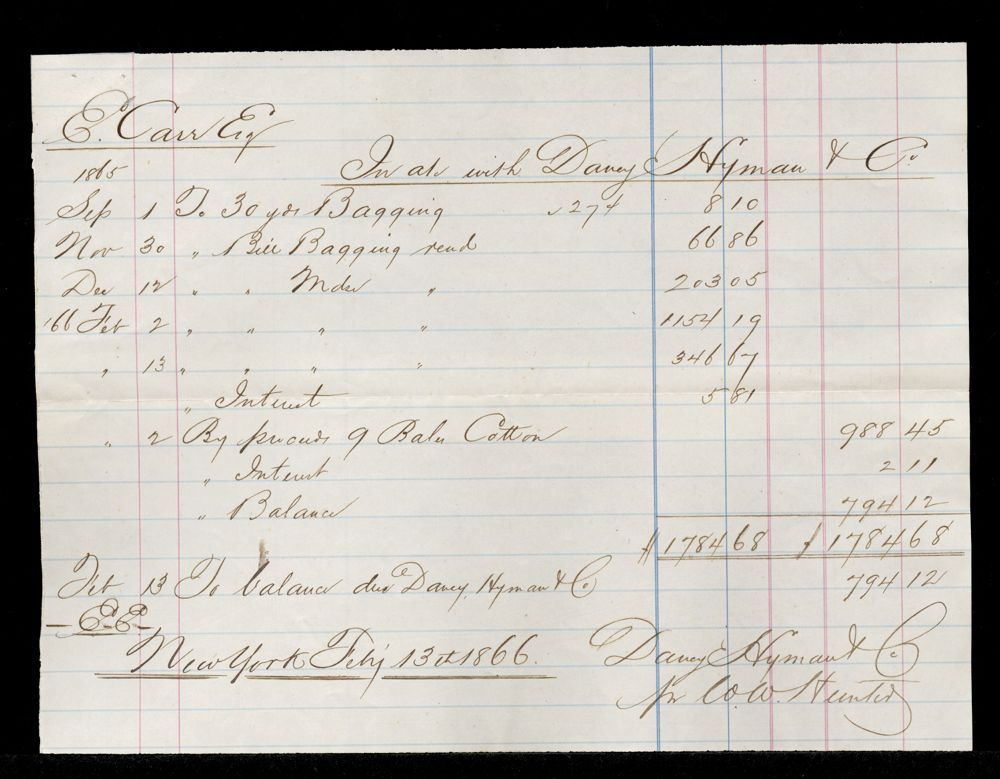 E. Carr Esq
1865 In a/c with Dancy Hyman & Co
Sep 1 To 30 yds Bagging 27¢ 8 10
Nov 30 " Bill Bagging rend 66 86
Dec 12 " " Mdse " 203 05
'66 Feb 2 " " " " 1154 19
" 13 " " " " 346 67
" Interest 5 81
" 2 By proceeds 9 Bales Cotton 988 45
" Interest 2 11
" Balance 794 12
$1784 68 $1784 68
Feb 13 To balance due Dancy Hyman & Co 794 12
E.E.
New York Feby 13th 1866.
Dancy Hyman & Co
pr W.W. Hunter